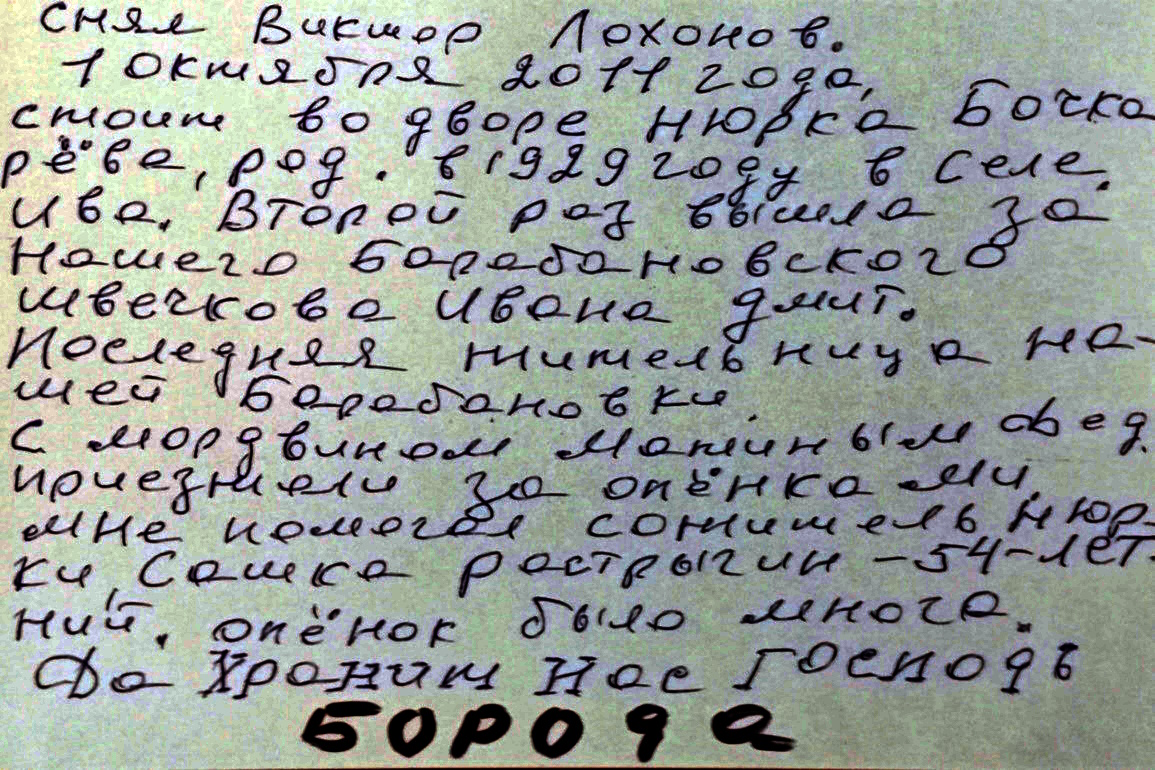 снял Виктор Лохонов.
1 октября 2011 года,
стоит во дворе Нюрка Бочка
рёва, род. в 1929 году в селе
Ива. Второй раз вышла за
нашего Барабановского
Швечкова Ивана Дмит.
Последняя жительница на-
шей Барабановки.
С мордвином Мотиным Фед.
приезжали за опёнками.
мне помогал сожитель Нюр-
ки, Сашка Растрыгин - 54-лет-
ний. опёнок было многа.
Да Хранит Нас Господь
БОРОДА